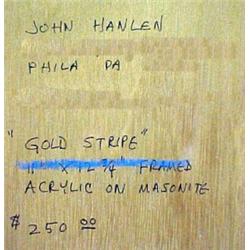 JOHN HANLEN
PHILA PA
"GOLD STRIPE"
11" X 12 3/4" FRAMED
ACRYLIC ON MASONITE
$250 00